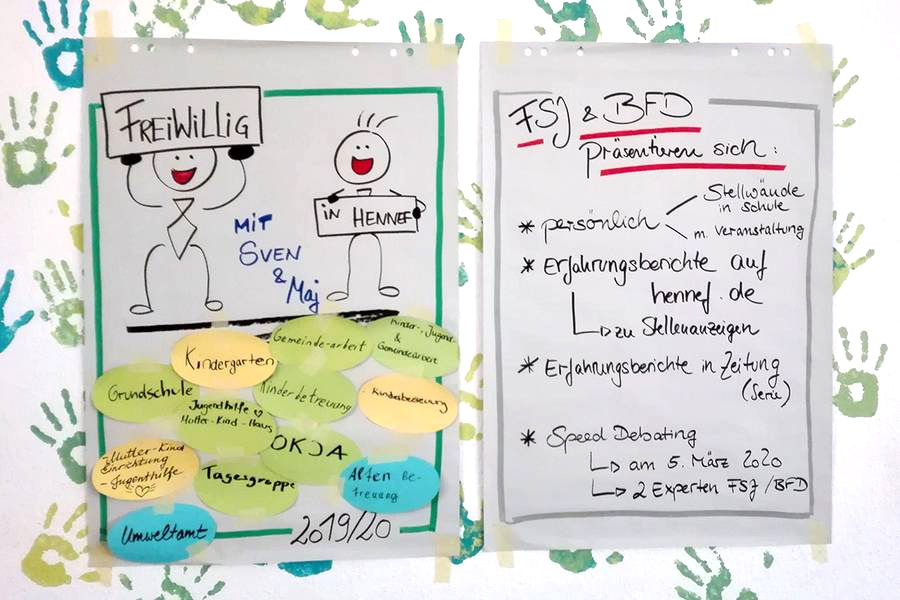 FREIWILLIG
in HENNEF
MIT
SVEN
&
Maj
Gemeinde-arbeit
Kinder-, Jugend-
&
Gemeindearbeit
Kindergarten
Grundschule
Kinderbetreuung
Kinderbetreuung
Jugendhilfe ♡
Mutter-Kind-Haus
OKJA
-Mutter-Kind
Einrichtung
-Jugendhilfe
Tagesgruppe
Alten Be-
treuung
Umweltamt
2019/20
FSJ & BFD
präsentieren sich:
* persönlich
Stellwände
in Schule
m. Veranstaltung
* Erfahrungsberichte auf
hennef.de
↳ zu Stellenanzeigen
* Erfahrungsberichte in Zeitung
(Serie)
* Speed Debating
↳ am 5. März 2020
↳ 2 Experten FSJ/BFD